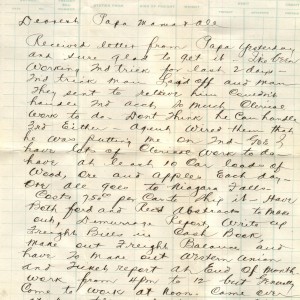 Dearest Papa Mama & all
Received letter from Papa yesterday
and sure glad to get it. I've been
Working 2nd trick for last 2 days -
2nd trick man laid off and man
They sent to relieve him couldn't
handle 2nd acct. So Much Clerical
Work to do - Dont Think he Can handle
3rd Either - Agent Wired them that
he Was putting me on 2nd
have lots of Clerical Work to do
have at least 10 Car loads of
Wood, Ore and Apples Each day -
Ore all goes to Niagara Falls
Costs 75¢ per Cwt to ship it - Have
Both fwd and Recd Abstracts to Make
out, Demurrage Report, Write up
Freight Bills in Cash Book
Make out Freight Balance and
have To Make out Western Union
and Ticket report at End of Month
Work from 4pm to 12 but Usually
Come to Work at Noon. Came over